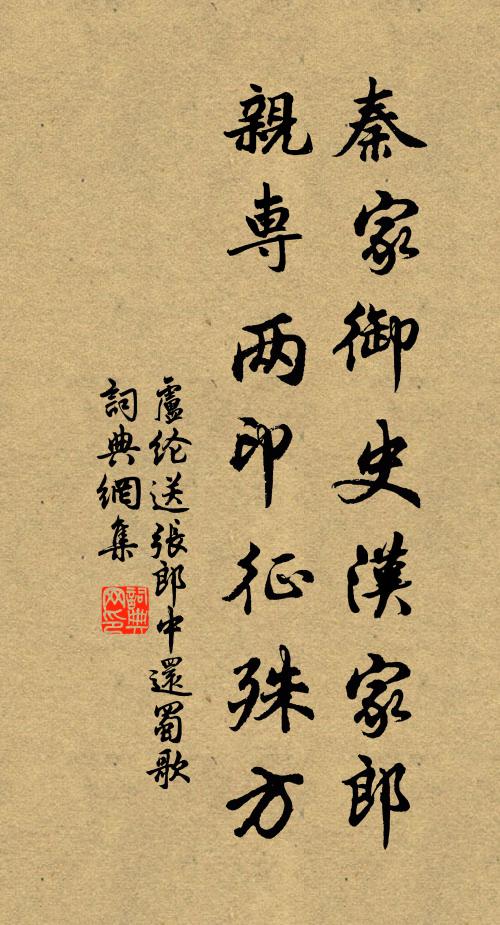 秦家御史漢家郎
親専两印征殊方
盧纶送張郎中還蜀歌
詞典網集
詞典网印